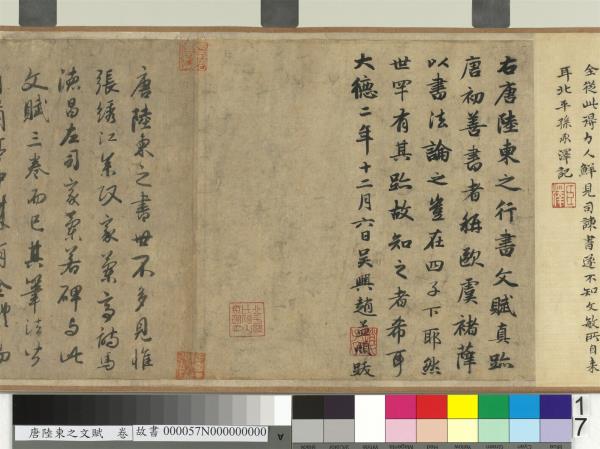 全從此得力人鮮見司諫書遂不知文敏所自来
耳北平孫承澤記
右唐陸柬之行書文賦真跡
唐初善書者稱歐虞褚薛
以書法論之豈在四子下耶然
世罕有其跡故知之者希耳
大德二年十二月六日吳興趙孟頫跋
唐陸柬之書世不多見惟
張綉江家蘭亭詩馬
德昌左司家蘭若碑与此
文賦三卷而已其筆法皆
唐陸柬之文賦 卷
故書 000057N000000000
A
17